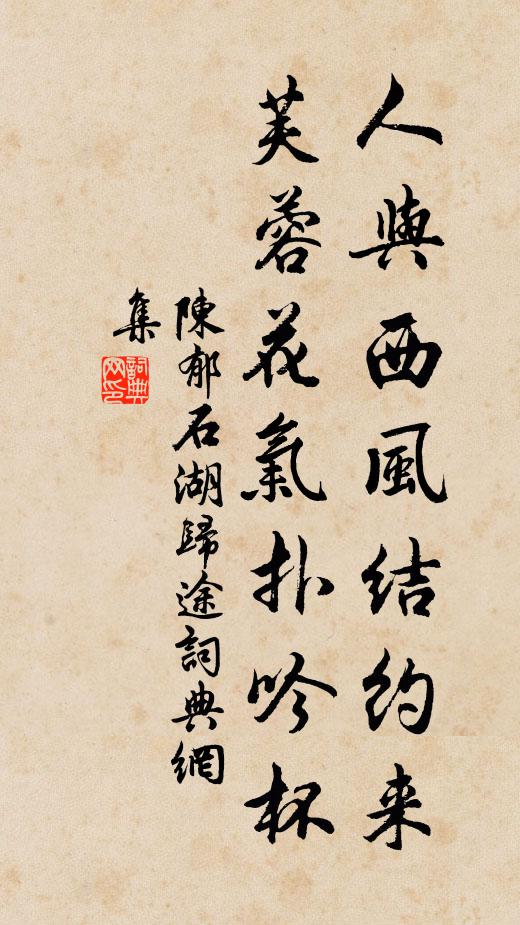 人與西風結約来
芙蓉花氣扑吟杯
陳郁石湖歸途詞典網
集
詞典
网印